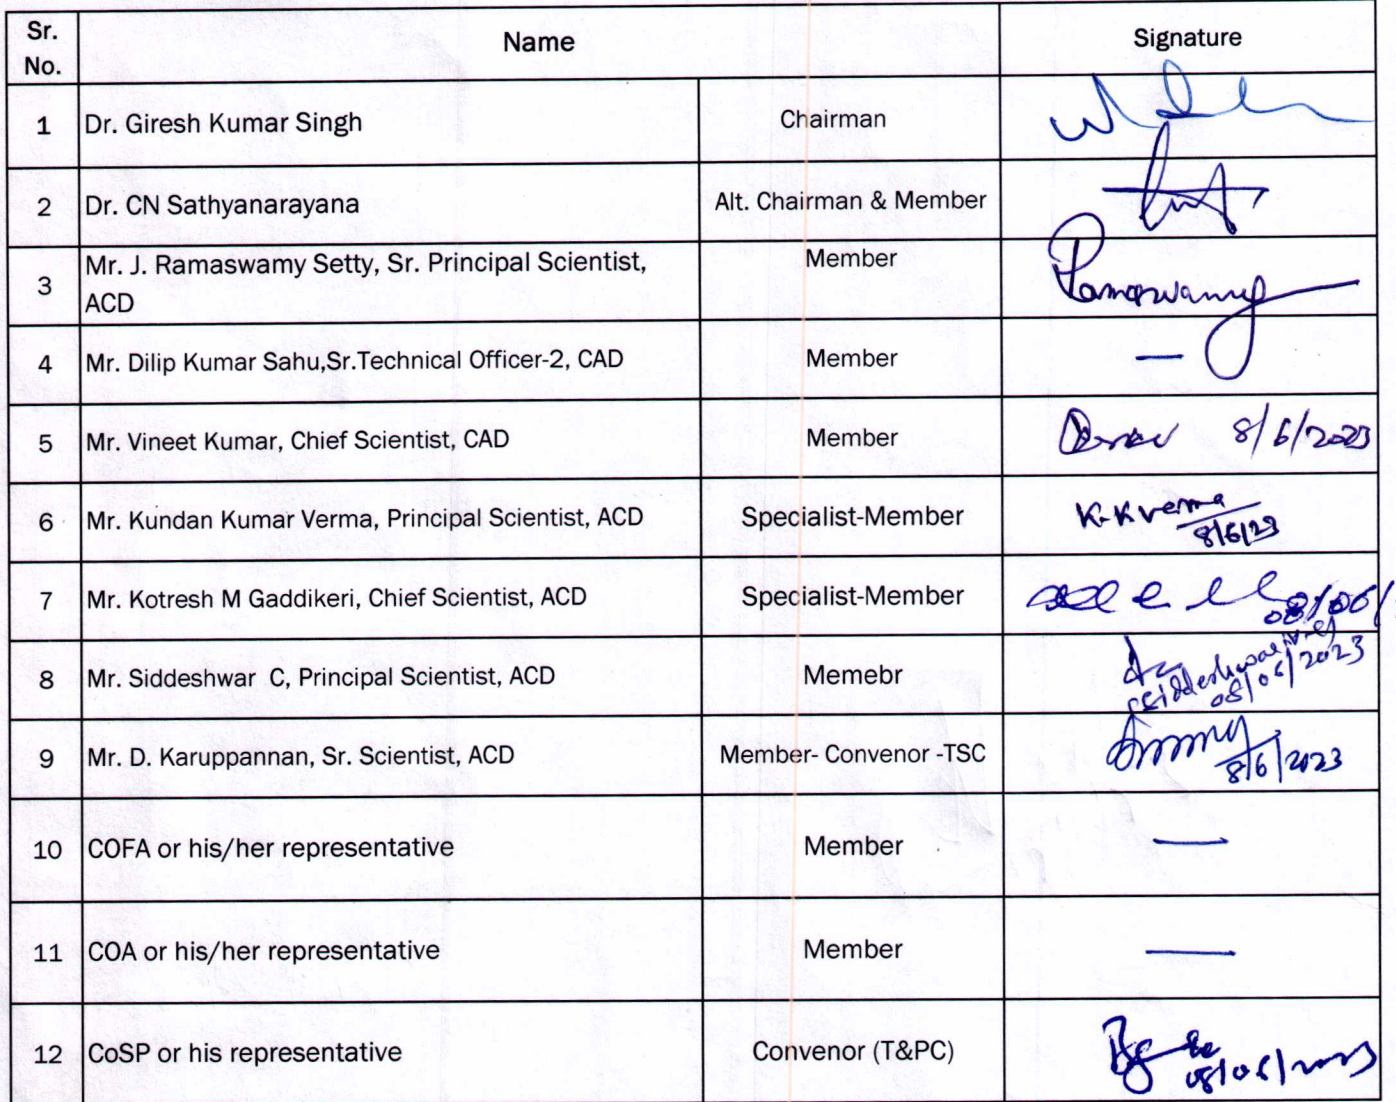 Sr. No. Name Signature
1 Dr. Giresh Kumar Singh Chairman
2 Dr. CN Sathyanarayana Alt. Chairman & Member
3 Mr. J. Ramaswamy Setty, Sr. Principal Scientist, ACD Member Ramaswamy
4 Mr. Dilip Kumar Sahu,Sr.Technical Officer-2, CAD Member —
5 Mr. Vineet Kumar, Chief Scientist, CAD Member 8/6/2023
6 Mr. Kundan Kumar Verma, Principal Scientist, ACD Specialist-Member K.K verma 8/6/23
7 Mr. Kotresh M Gaddikeri, Chief Scientist, ACD Specialist-Member 08/06/
8 Mr. Siddeshwar C, Principal Scientist, ACD Memebr 08/06/2023
9 Mr. D. Karuppannan, Sr. Scientist, ACD Member- Convenor -TSC 8/6/2023
10 COFA or his/her representative Member —
11 COA or his/her representative Member —
12 CoSP or his representative Convenor (T&PC) 08/06/2023